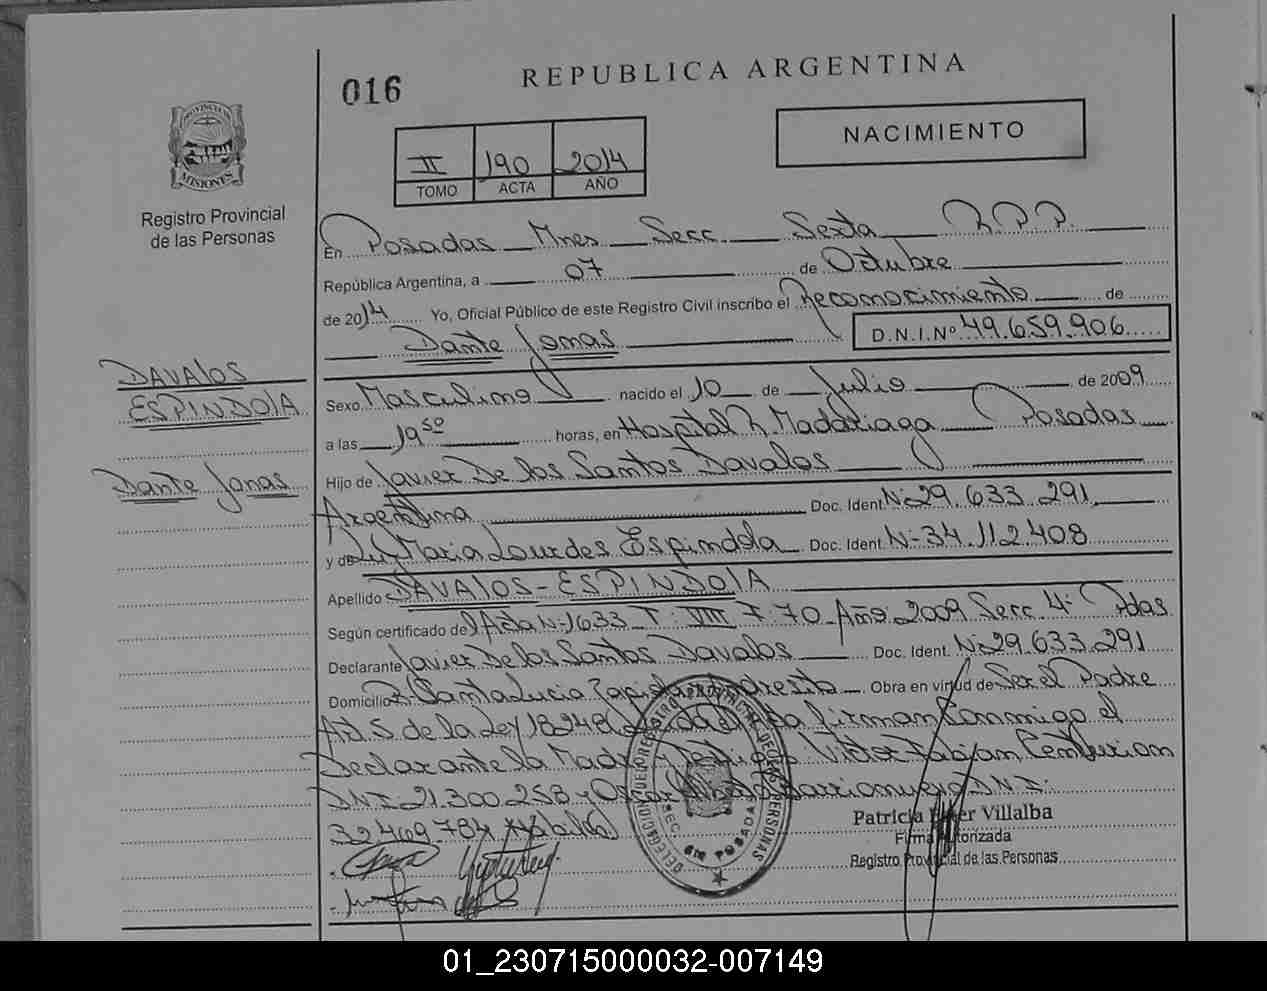 016
REPUBLICA ARGENTINA
NACIMIENTO
PROVINCIA DE
MISIONES
Registro Provincial
de las Personas
II 190 2014
TOMO ACTA AÑO
En Posadas Mnes Secc. Sexta R.P.P.
República Argentina, a 07 de Octubre
de 2014 Yo, Oficial Público de este Registro Civil inscribo el Reconocimiento de
Dante Jonas D.N.I.Nº 49.659.906
DAVALOS
ESPINDOLA
Dante Jonas
Sexo Masculino nacido el 10 de Julio de 2009
a las 19 50 horas, en Hospital R. Madariaga Posadas
Hijo de Javier De los Santos Davalos
Argentina Doc. Ident. Nº 29.633.291
y de María Lourdes Espindola Doc. Ident. Nº 34.112.408
Apellido DAVALOS - ESPINDOLA
Según certificado de Acta Nº 1633 T: VIII F: 70 Año 2009 Secc 4º Pdas
Declarante Javier De los Santos Davalos Doc. Ident. Nº 29.633.291
Domicilio Santa Lucia Obra en virtud de Ser el Padre
Art. 5 de la Ley 18248 Leida el Acta firman Conmigo el
Declarante la Madre y Testigos Victor Fabian Centurion
DNI 21.300.258 y Oscar Barrionuevo D.N.I:
32.469.784
DELEGACION REGISTRO PROVINCIAL DE LAS PERSONAS
SEC. 6TA POSADAS
Patricia Villalba
Firma Autorizada
Registro Provincial de las Personas
01_230715000032-007149